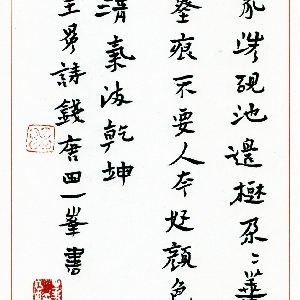 家洗硯池邊樹朵〻華
墨痕不要人夸好顏色
清氣滿乾坤
王冕詩錢唐田一峯書